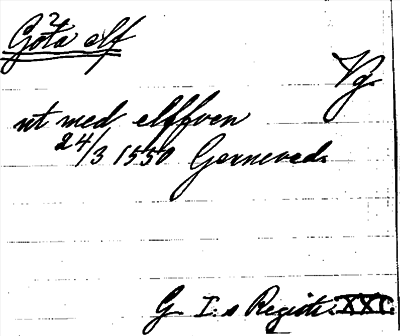 Göta elf
Vg.
ut med elffven
24/3 1550 Gerneved.
G. I:s Registr. XXI.